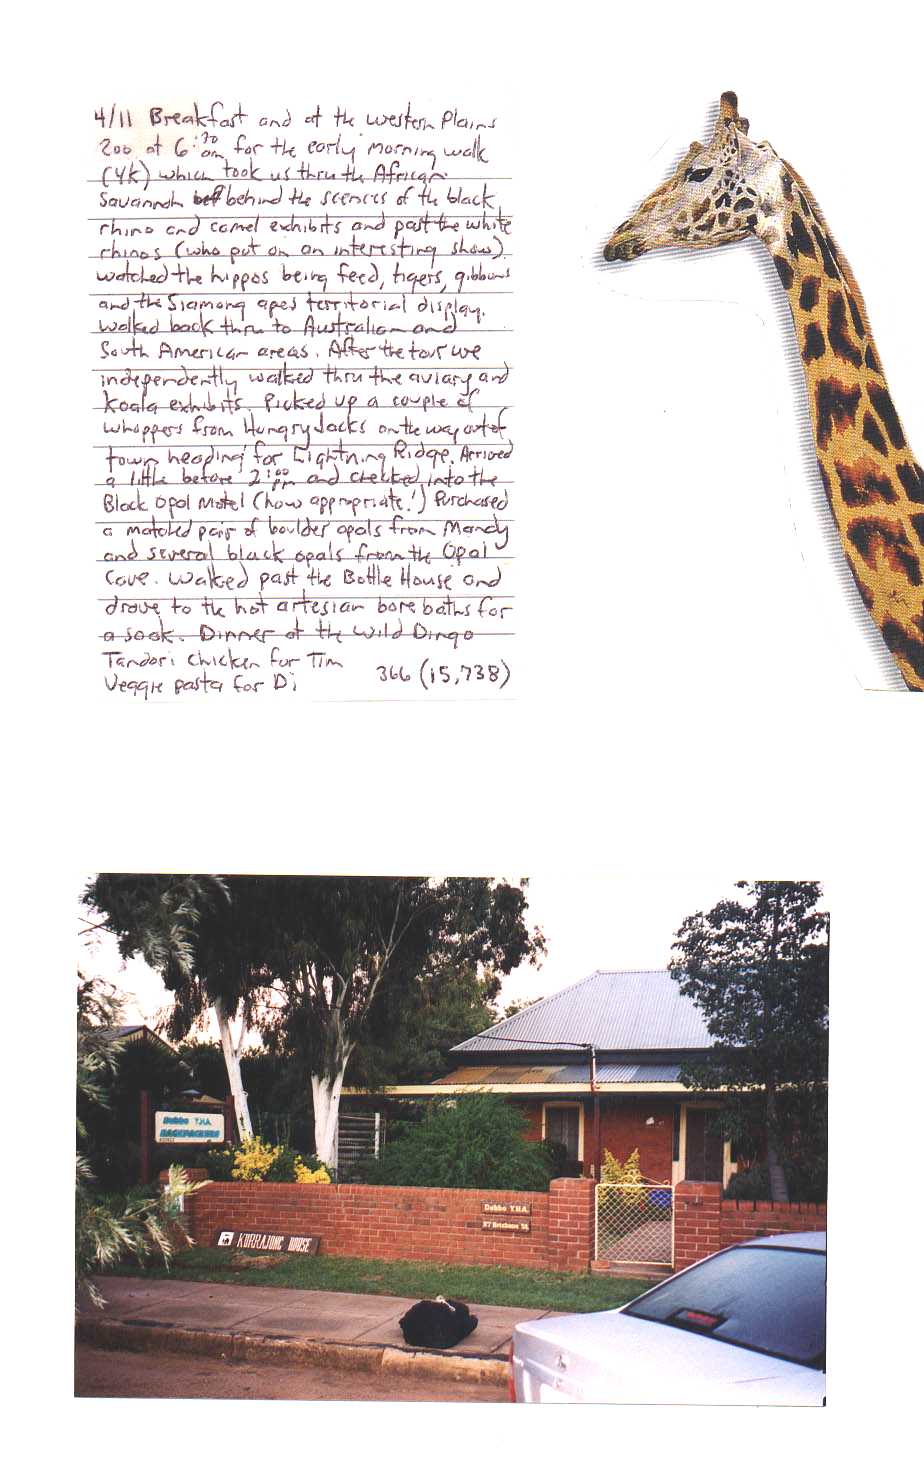 4/11 Breakfast and at the Western Plains
Zoo at 6:30 am for the early morning walk
(4k) which took us thru the African
Savannah behind the scences of the black
rhino and camel exhibits and past the white
rhinos (who put on an interesting show).
Watched the hippos being feed, tigers, gibbons
and the Siamang apes territorial display.
Walked back thru to Australian and
South American areas. After the tour we
independently walked thru the aviary and
Koala exhibits. Picked up a couple of
whoppers from Hungry Jacks on the way out of
town heading for Lightning Ridge. Arrived
a little before 2:00 pm and checked into the
Black Opal Motel (how appropriate!) Purchased
a matched pair of boulder opals from Mandy
and several black opals from the Opal
Cave. Walked past the Bottle House and
drove to the hot artesian bore baths for
a soak. Dinner at the Wild Dingo
Tandori chicken for Tim
Veggie pasta for Di
366 (15,738)
Dubbo Y.H.A.
BACKPACKERS
HOSTEL
Dubbo Y.H.A.
87 Brisbane St.
KURRAJONG HOUSE